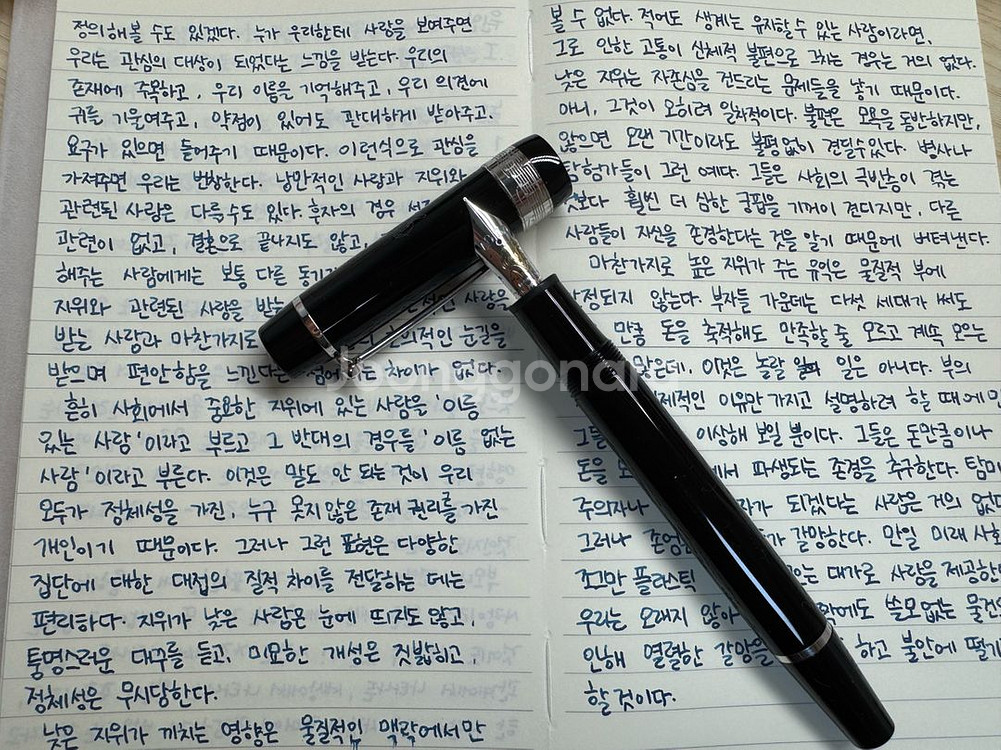 정의해볼 수도 있겠다. 누가 우리한테 사랑을 보여주면
우리는 관심의 대상이 되었다는 느낌을 받는다. 우리의
존재에 주목하고, 우리 이름을 기억해주고, 우리 의견에
귀를 기울여주고, 약점이 있어도 관대하게 받아주고.
요구가 있으면 들어주기 때문이다. 이런식으로 관심을
가져주면 우리는 번창한다. 낭만적인 사랑과 지위와
관련된 사랑은 다를수도 있다. 후자의 경우
관련이 없고, 결혼으로 끝나지도 않고,
해주는 사람에게는 보통 다른
지위와 관련된 사랑을 받는 사랑을
받는 사랑과 마찬가지로 호의적인 눈길을
받으며 편안함을 느낀다는 점에는 차이가 없다.
흔히 사회에서 중요한 지위에 있는 사람을 '이름
있는 사람'이라고 부르고 그 반대의 경우를 '이름 없는
사람'이라고 부른다. 이것은 말도 안 되는 것이 우리
모두가 정체성을 가진, 누구 못지않은 존재 권리를 가진
개인이기 때문이다. 그러나 그런 표현은 다양한
집단에 대한 대접의 질적 차이를 전달하는 데는
편리하다. 지위가 낮은 사람은 눈에 띄지도 않고,
퉁명스러운 대꾸를 듣고, 미묘한 개성은 짓밟히고,
정체성은 무시당한다.
낮은 지위가 끼치는 영향은 물질적인 맥락에서만
볼 수 없다. 적어도 생계는 유지할 수 있는 사람이라면,
그로 인한 고통이 신체적 불편으로 그치는 경우는 거의 없다.
낮은 지위는 자존심을 건드리는 문제들을 낳기 때문이다.
아니, 그것이 오히려 일차적이다. 불편은 모욕을 동반하지만,
않으면 오랜 기간이라도 불평없이 견딜수있다. 병사나
탐험가들이 그런 예다. 그들은 사회의 극빈층이 겪는
것보다 훨씬 더 심한 궁핍을 기꺼이 견디지만, 다른
사람들이 자신을 존경한다는 것을 알기 때문에 버텨낸다.
마찬가지로 높은 지위가 주는 유익은 물질적 부에
한정되지 않는다. 부자들 가운데는 다섯 세대가 써도
만큼 돈을 축적해도 만족할 줄 모르고 계속 모으는
많은데, 이것은 놀랄 일은 아니다. 부의
이유만 가지고 설명하려 할 때에만
이상해 보일 뿐이다. 그들은 돈만큼이나
돈을 파생되는 존경을 추구한다. 탐미
주의자나 되겠다는 사람은 거의 없다
그러나 갈망한다. 만일 미래 사회
조그만 플라스틱 대가로 사랑을 제공한
우리는 오래지 않아 쓸모없는 물건
인해 열렬한 갈망을 하고 불안에 떨게
할 것이다.
Joonggonara